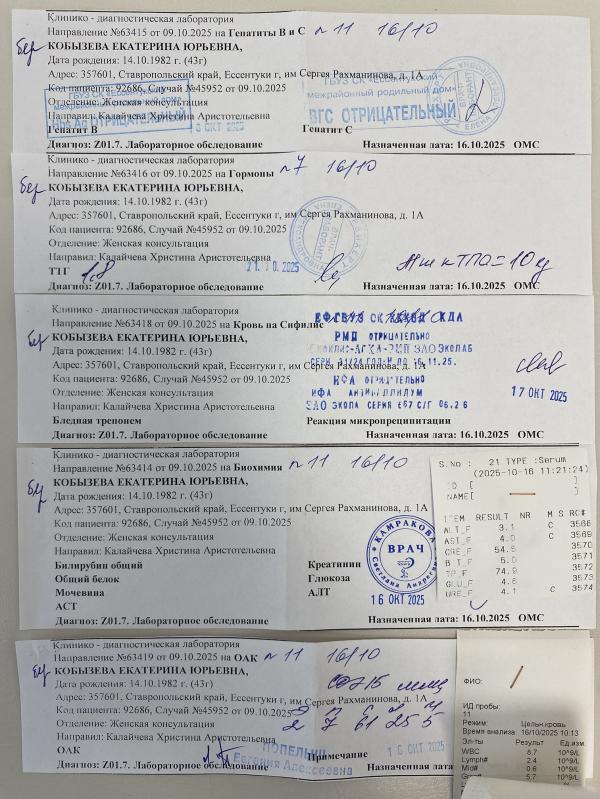 Клинико - диагностическая лаборатория
Направление №63415 от 09.10.2025 на Гепатиты В и С n 11 16/10
бер КОБЫЗЕВА ЕКАТЕРИНА ЮРЬЕВНА,
Дата рождения: 14.10.1982 г. (43г)
Адрес: 357601, Ставропольский край, Ессентуки г, им Сергея Рахманинова, д. 1А
Код пациента: 92686, Случай №45952 от 09.10.2025
Отделение: Женская консультация
Направил: Калайчева Христина Аристотельевна
ГБУЗ СК «Ессентукский
межрайонный родильный дом»
HBs Ag ОТРИЦАТЕЛЬНЫЙ
ОКТ 2025
ГБУЗ СК «Ессентукский
межрайонный родильный дом»
ВГС ОТРИЦАТЕЛЬНЫЙ
Гепатит В Гепатит С
Диагноз: Z01.7. Лабораторное обследование Назначенная дата: 16.10.2025 ОМС
Клинико - диагностическая лаборатория
Направление №63416 от 09.10.2025 на Гормоны n 7 16/10
бер КОБЫЗЕВА ЕКАТЕРИНА ЮРЬЕВНА,
Дата рождения: 14.10.1982 г. (43г)
Адрес: 357601, Ставропольский край, Ессентуки г, им Сергея Рахманинова, д. 1А
Код пациента: 92686, Случай №45952 от 09.10.2025
Отделение: Женская консультация
Направил: Калайчева Христина Аристотельевна
ТТГ 1,8 21.10.2025
Диагноз: Z01.7. Лабораторное обследование Назначенная дата: 16.10.2025 ОМС
Клинико - диагностическая лаборатория
Направление №63418 от 09.10.2025 на Кровь на Сифилис
бер КОБЫЗЕВА ЕКАТЕРИНА ЮРЬЕВНА,
Дата рождения: 14.10.1982 г. (43г)
Адрес: 357601, Ставропольский край, Ессентуки г, им Сергея Рахманинова, д. 1А
Код пациента: 92686, Случай №45952 от 09.10.2025
Отделение: Женская консультация
Направил: Калайчева Христина Аристотельевна
КДЛ
РМП ОТРИЦАТЕЛЬНО
ИФА ОТРИЦАТЕЛЬНО
17 ОКТ 2025
Бледная трепонем Реакция микропреципитации
Диагноз: Z01.7. Лабораторное обследование Назначенная дата: 16.10.2025 ОМС
Клинико - диагностическая лаборатория
Направление №63414 от 09.10.2025 на Биохимия n 11 16/10
бер КОБЫЗЕВА ЕКАТЕРИНА ЮРЬЕВНА,
Дата рождения: 14.10.1982 г. (43г)
Адрес: 357601, Ставропольский край, Ессентуки г, им Сергея Рахманинова, д. 1А
Код пациента: 92686, Случай №45952 от 09.10.2025
Отделение: Женская консультация
Направил: Калайчева Христина Аристотельевна
Билирубин общий Креатинин
Общий белок Глюкоза
Мочевина АЛТ
АСТ
КАМРАКОВА
ВРАЧ
Светлана Андреевна
16 ОКТ 2025
Диагноз: Z01.7. Лабораторное обследование Назначенная дата: 16.10.2025 ОМС
S.No : 21 TYPE :Serum
(2025-10-16 11:21:24)
ID [ ]
NAME[ ]
ITEM RESULT NR M S RC#
ALT_F 3.1 C 3568
AST_F 4.0 C 3569
CRE_F 54.5 3570
B T_F 5.0 3571
TP_F 74.9 3572
GLU_F 4.6 3573
URE_F 4.1 C 3574
Клинико - диагностическая лаборатория
Направление №63419 от 09.10.2025 на ОАК n 11 16/10
бер КОБЫЗЕВА ЕКАТЕРИНА ЮРЬЕВНА,
Дата рождения: 14.10.1982 г. (43г)
Адрес: 357601, Ставропольский край, Ессентуки г, им Сергея Рахманинова, д. 1А
Код пациента: 92686, Случай №45952 от 09.10.2025
Отделение: Женская консультация
Направил: Калайчева Христина Аристотельевна
СОЭ 15 мм/ч
2 7 61 25 5
ОАК Примечание
Евгения Алексеевна
16 ОКТ 2025
Диагноз: Z01.7. Лабораторное обследование Назначенная дата
ФИО:
ИД пробы:
11
Режим: Цельн.кровь
Время анализа: 16/10/2025 10:13
Эл-ты Результ Ед.изм
WBC 8.7 10^9/L
Lymph# 2.4 10^9/L
Mid# 0.6 10^9/L
5.7 10^9/L